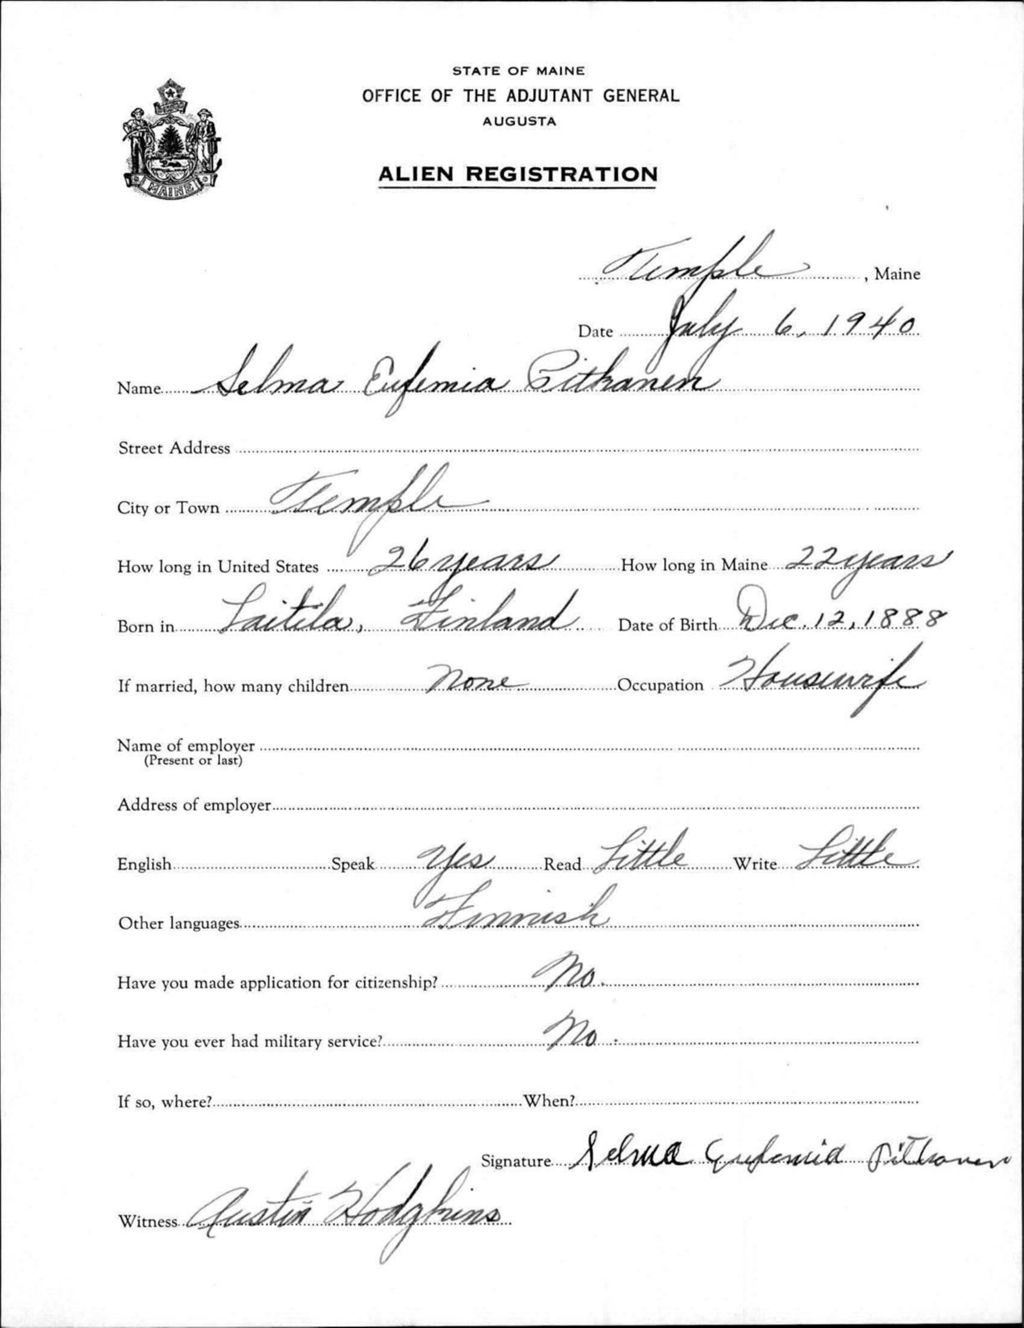 STATE OF MAINE
OFFICE OF THE ADJUTANT GENERAL
AUGUSTA
ALIEN REGISTRATION
MAINE
Temple, Maine
Date July 6, 1940
Name Selma Eufemia Pitkanen
Street Address
City or Town Temple
How long in United States 26 years How long in Maine 22 years
Born in Laitila, Finland Date of Birth Dec. 12, 1888
If married, how many children None Occupation Housewife
Name of employer
(Present or last)
Address of employer
English Speak Yes Read Little Write Little
Other languages Finnish
Have you made application for citizenship? No.
Have you ever had military service? No.
If so, where? When?
Signature Selma Eufemia Pitkanen
Witness Austin Hodgkins